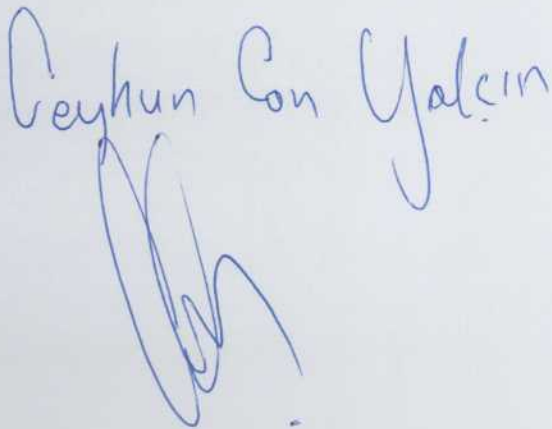 Ceyhun Can Yalçın